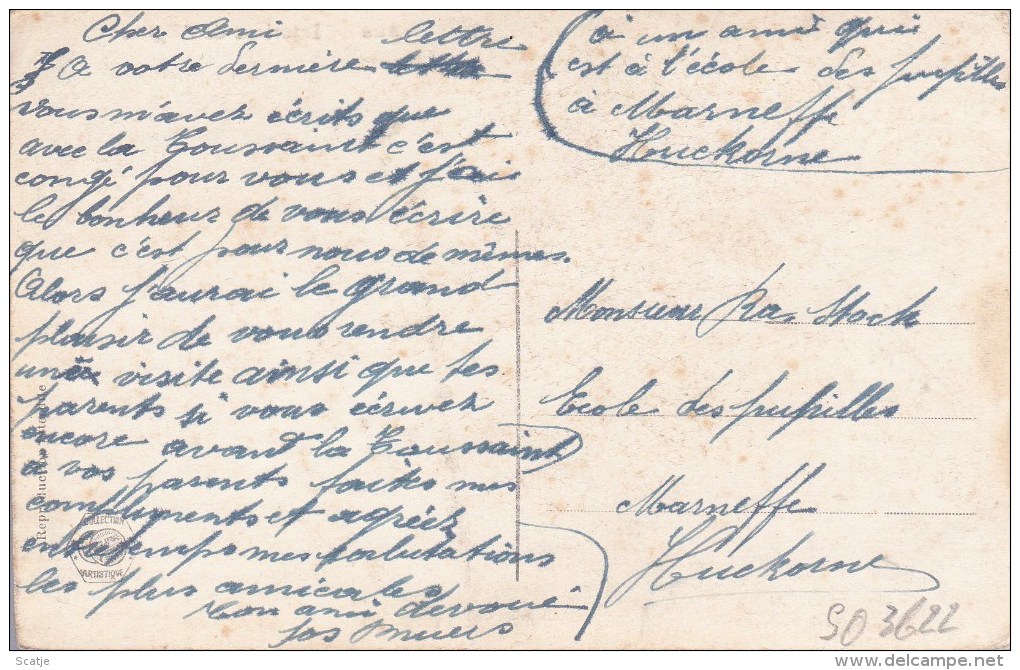 Cher Ami
A votre dernière lettre
vous m'avez écrits que
avec la Toussaint c'est
congé pour vous et j'ai
le bonheur de vous écrire
que c'est pour nous de mêmes.
Alors j'aurai le grand
plaisir de vous rendre
une visite ainsi que tes
parents si vous écrivez
encore avant la Toussaint
a vos parents faites mes
compliments et agréez
entretemps mes salutations
les plus amicales
Ton ami dévoué
Jos
à un ami qui
est à l'école des pupilles
à Marneffe
Huckorne
Monsieur Ra. Stock
Ecole des pupilles
Marneffe
Huckorne
COLLECTION
ARTISTIQUE
SO 3622
Scatje
delcampe.net